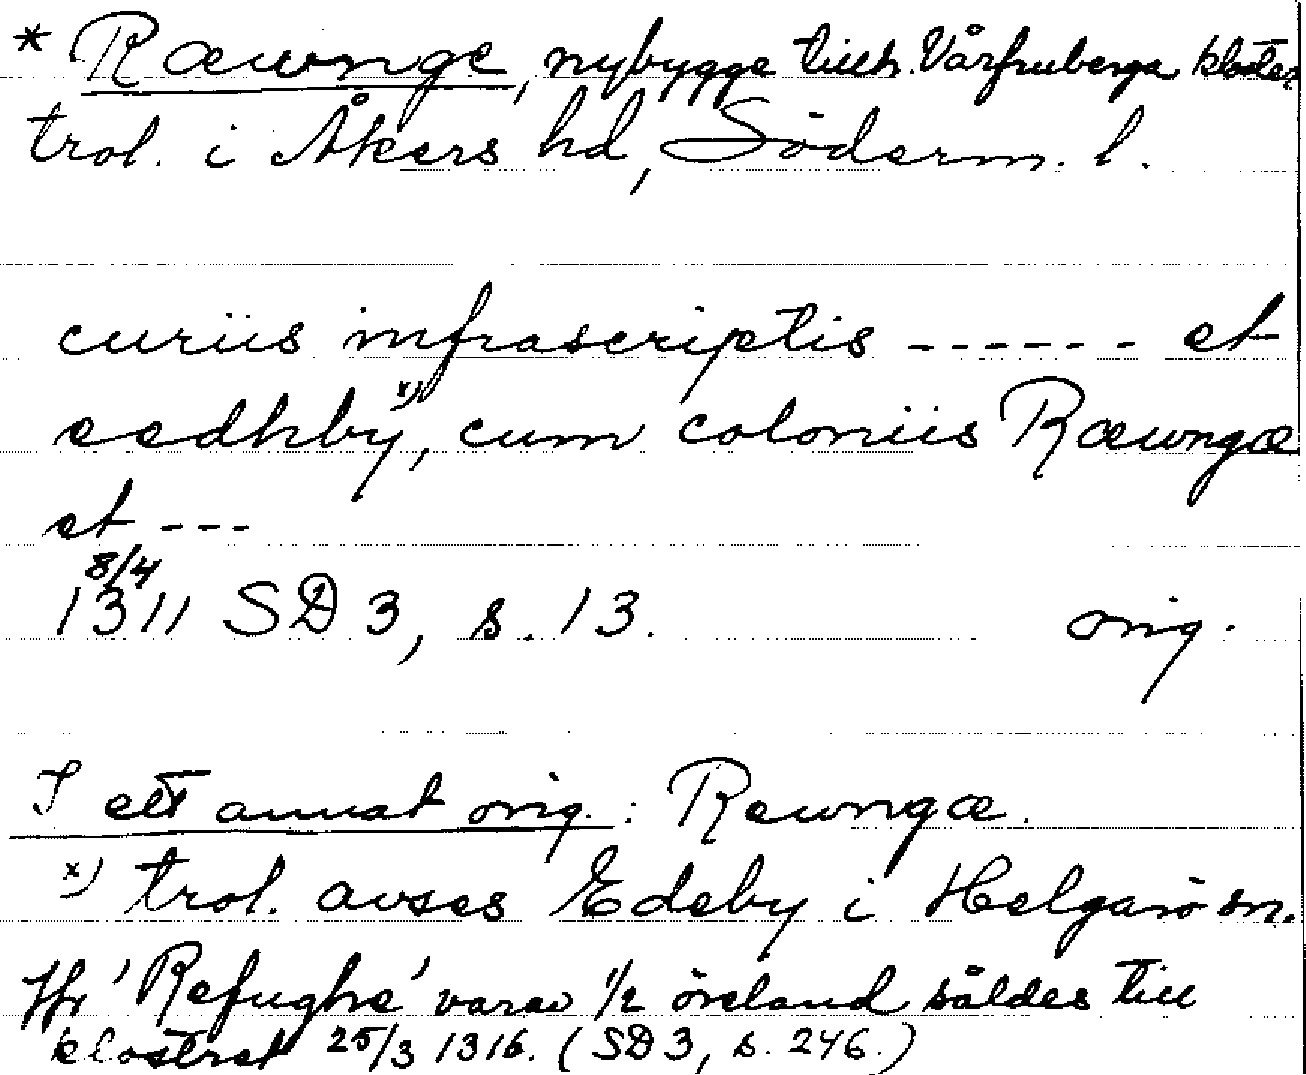 * Ræwnge, nybygge tillh. Vårfruberga kloster
trol. i Åkers hd, Söderm. l.
curiis infrascriptis ------ et
eedhby x), cum coloniis Ræwngæ
et ---
8/4
1311 SD 3, s. 13. orig.
I ett annat orig.: Rewngæ.
x) trol. avses Edeby i Helgarö sn.
Jfr 'Refughe' varav 1/2 öresland såldes till
klostret 25/3 1316. (SD 3, s. 246.)